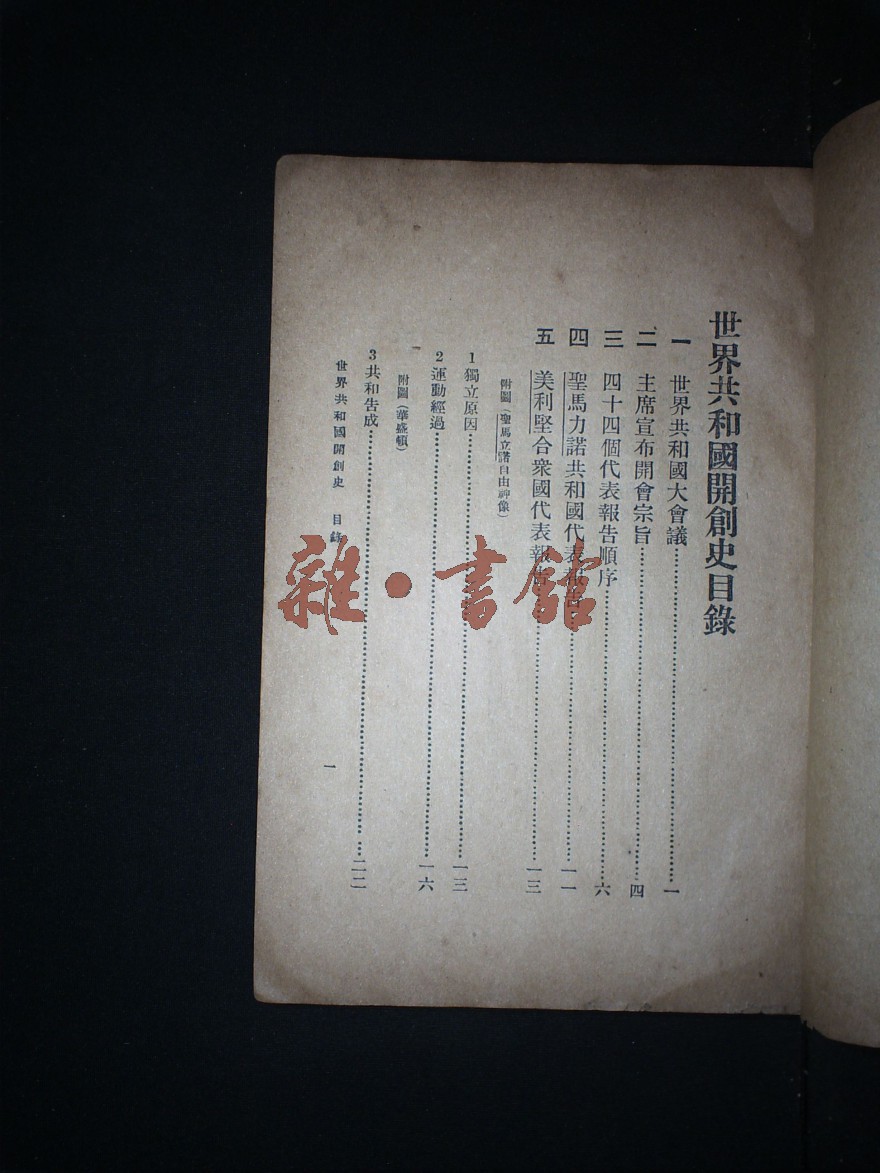 世界共和國開創史目錄
一 世界共和國大會議……一
二 主席宣布開會宗旨……四
三 四十四個代表報告順序……六
四 聖馬力諾共和國代表報告……一一
五 美利堅合衆國代表報告……一三
附圖（聖馬立諾自由神像）
1 獨立原因……一三
2 運動經過……一六
附圖（華盛頓）
3 共和告成……二二
世界共和國開創史 目錄
一
雜·書館